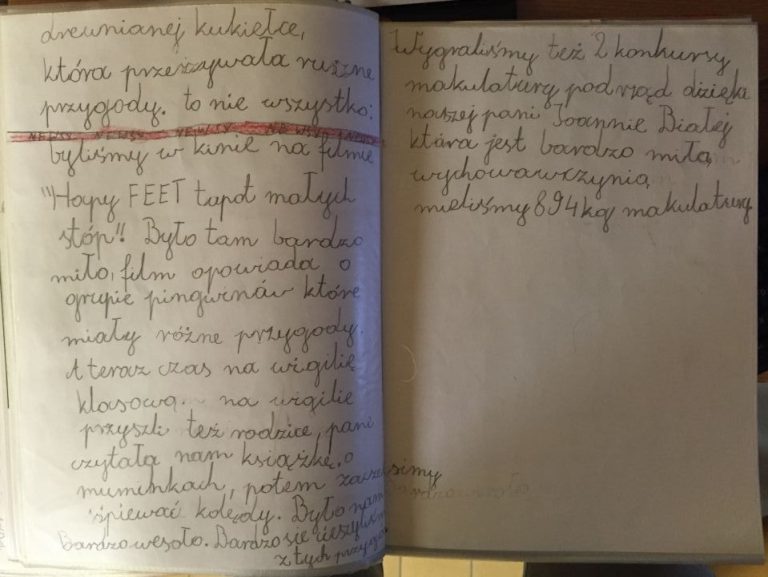 drewnianej kukiełce,
która przeżywała różne
przygody. to nie wszystko:
NEWSY NEWSY NEWSY NEWSY NEWSY
byliśmy w kinie na filmie
"Hapy FEET tapot małych
stóp". Było tam bardzo
miło, film opowiada o
grupie pingwinów które
miały różne przygody.
A teraz czas na wigilię
klasową. na wigilię
przyszli też rodzice, pani
czytała nam książkę o
muminkach, potem zaczeliśmy
śpiewać kolędy. Było nam
Bardzo wesoło. Bardzo się cieszyliśmy
z tych
Wygraliśmy też 2 konkursy
makulatury pod rząd dzięki
naszej pani Joannie Białej
która jest bardzo miłą
wychowawczynią
mieliśmy 894kg makulatury